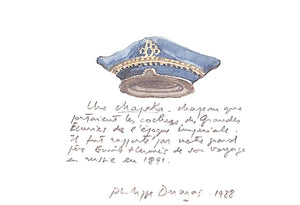 Une chapska, chapeau que
portaient les cochers des Grandes
Ecuries de l'époque impériale.
Il fut rapporté par notre grand
père Emile Hermès de son voyage
en russie en 1891.
Philippe Dumas 1988